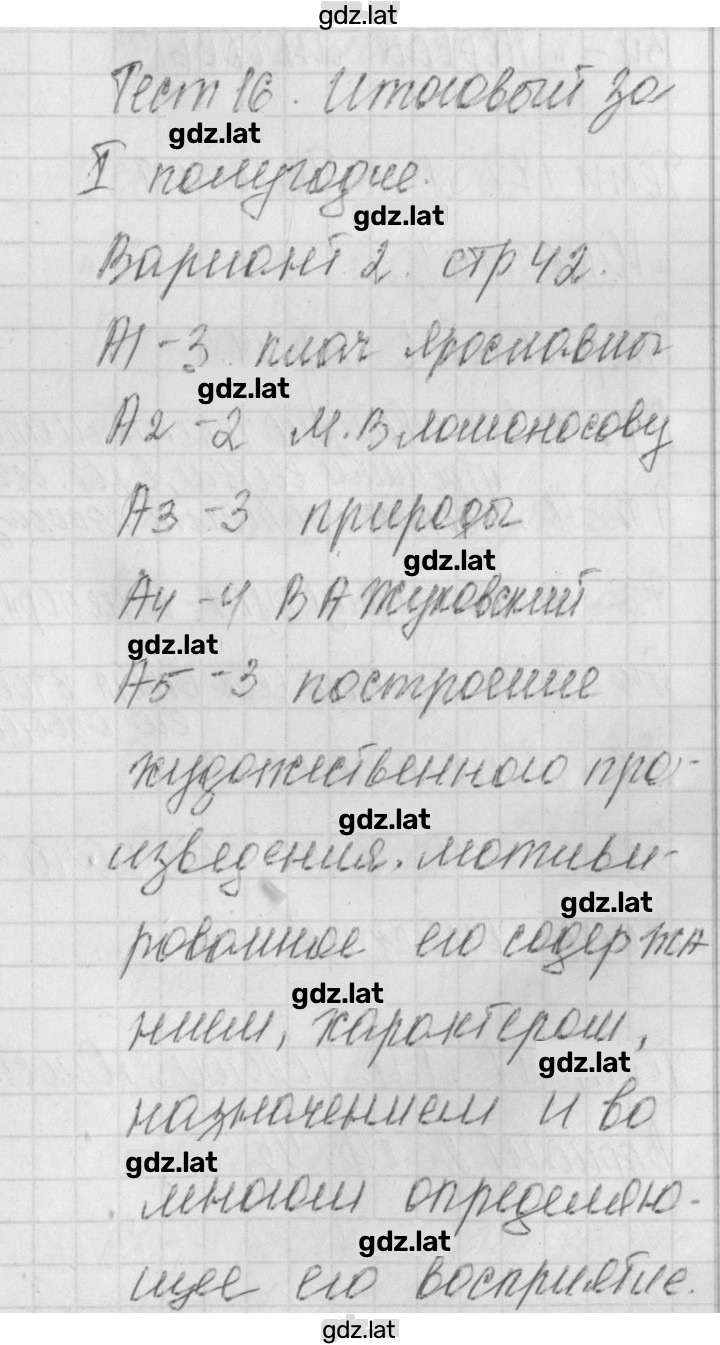 gdz.lat
Тест 16. Итоговый за
gdz.lat
I полугодие.
gdz.lat
Вариант 2. стр 42.
А1 - 3 плач Ярославны
gdz.lat
А2 - 2 М.В Ломоносову
А3 - 3 природы
gdz.lat
А4 - 4 В А Жуковский
gdz.lat
А5 - 3 построение
художественного про-
gdz.lat
изведения. мотиви-
gdz.lat
рованное его содержа
gdz.lat
нием, характером,
gdz.lat
назначением и во
gdz.lat
многом определяю-
gdz.lat
щее его восприятие.
gdz.lat